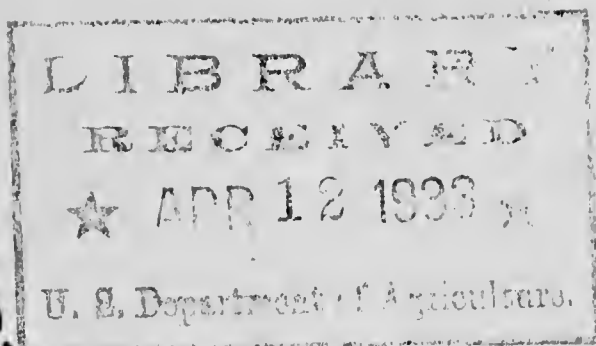 LIBRARY
RECEIVED
★ APR 12 1933 ★
U. S. Department of Agriculture.